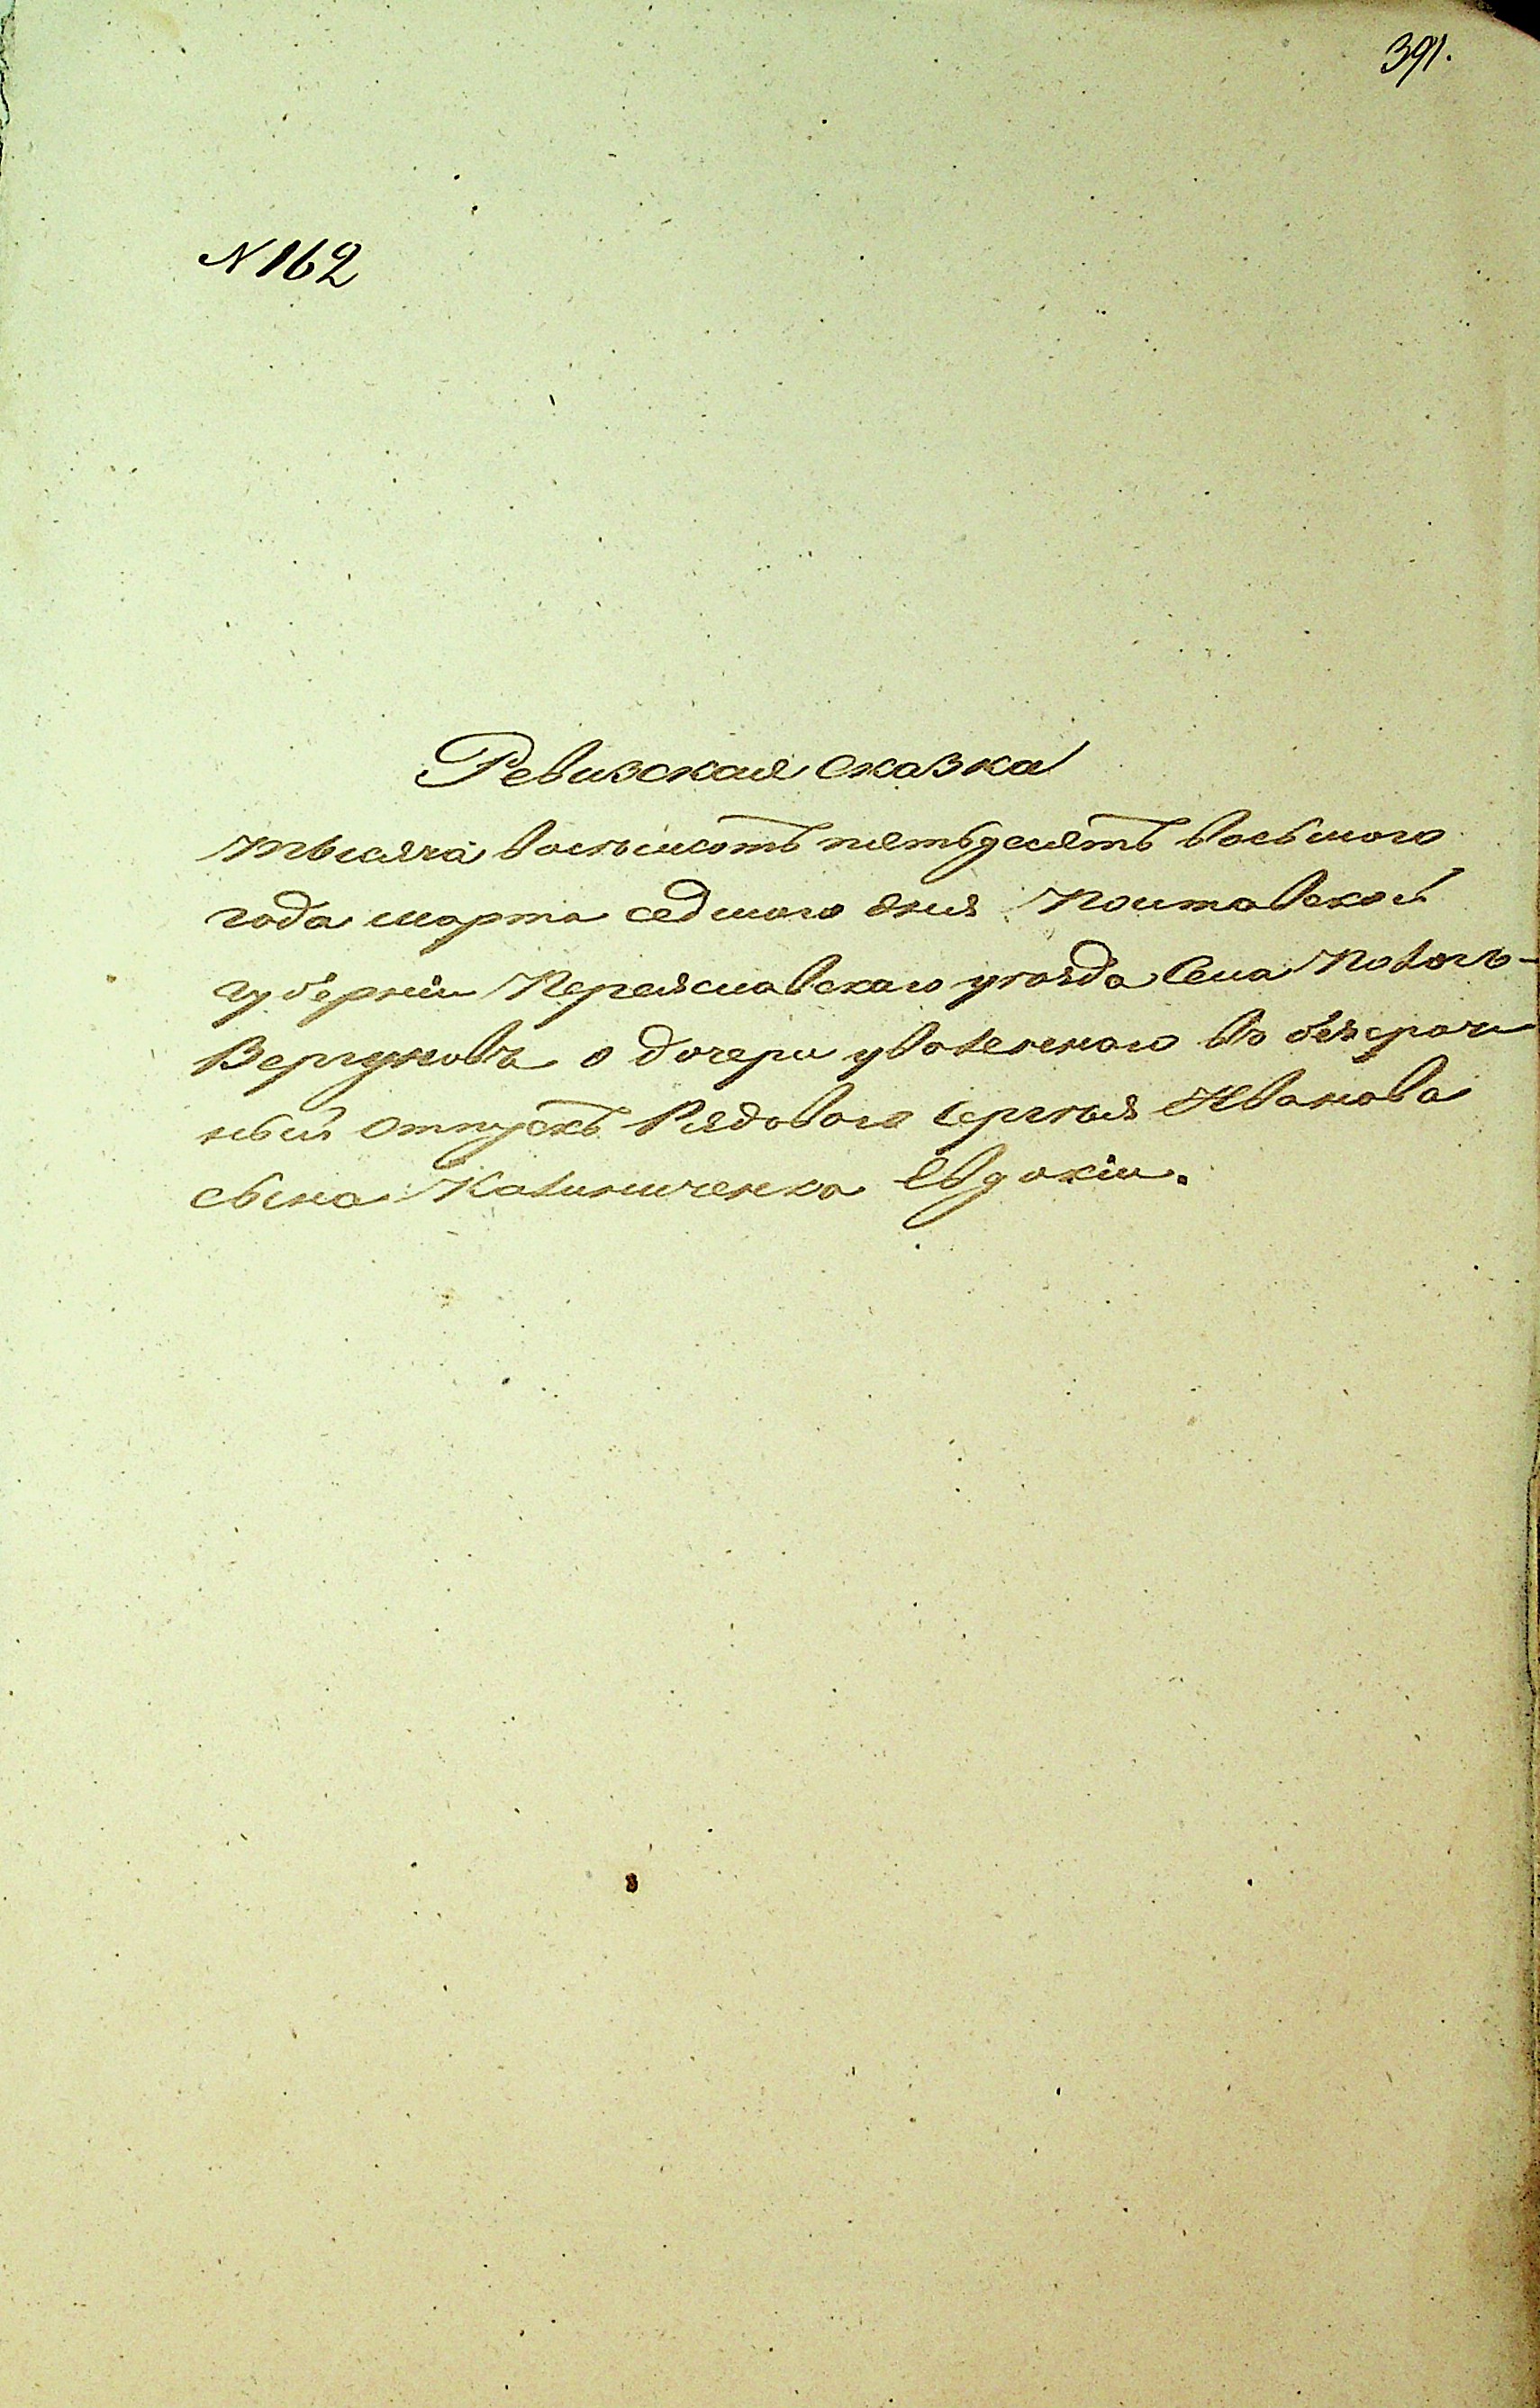 391.
N 162
Ревизская сказка
тысяча восемьсотъ пятьдесятъ восьмого
года марта седмого дня Полтавской
губерніи Переяславскаго уѣзда Села
Вергуновъ о дочери уволенного въ безсроч
ный отпускъ Рядового Сергѣя Иванова
сына Калиниченка Евдокіи.